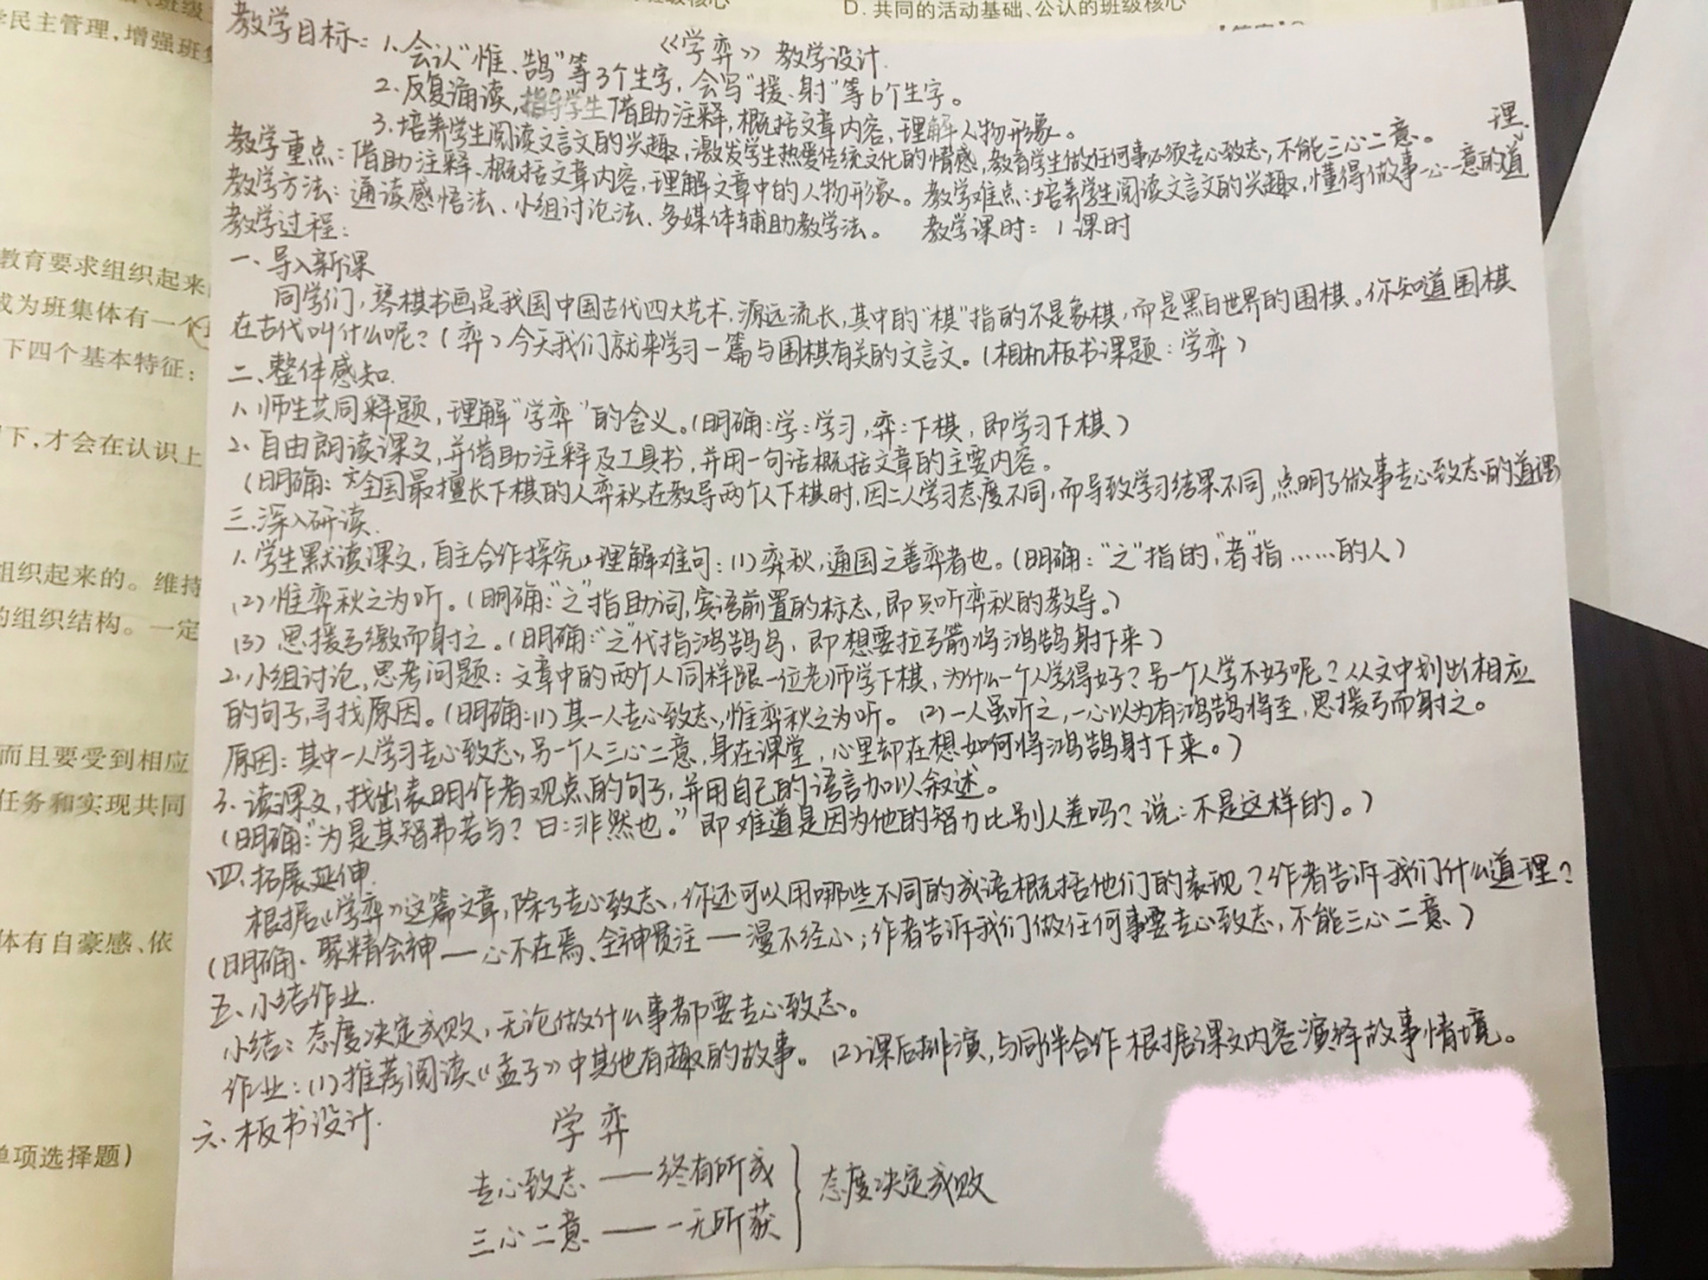 班级
学民主管理,增强班
D. 共同的活动基础、公认的班级核心
教育要求组织起来
成为班集体有一个
下四个基本特征:
下,才会在认识上
组织起来的。维持
的组织结构。一定
而且要受到相应
任务和实现共同
体有自豪感、依
单项选择题)
《学弈》教学设计
教学目标:1.会认“惟、鹄”等3个生字,会写“援、射”等6个生字。
2.反复诵读,指导学生借助注释,概括文章内容,理解人物形象。
3.培养学生阅读文言文的兴趣,激发学生热爱传统文化的情感,教育学生做任何事必须专心致志,不能三心二意。
教学重点:借助注释、概括文章内容,理解文章中的人物形象。教学难点:培养学生阅读文言文的兴趣,懂得做事一心一意的道理.
教学方法:通读感悟法、小组讨论法、多媒体辅助教学法。 教学课时:1课时
教学过程:
一、导入新课
同学们,琴棋书画是我国中国古代四大艺术,源远流长,其中的“棋”指的不是象棋,而是黑白世界的围棋。你知道围棋
在古代叫什么呢?(弈)今天我们就来学习一篇与围棋有关的文言文。(相机板书课题:学弈)
二、整体感知.
1、师生共同释题,理解“学弈”的含义。(明确:学:学习,弈:下棋,即学习下棋)
2、自由朗读课文,并借助注释及工具书,并用一句话概括文章的主要内容。
(明确:全国最擅长下棋的人弈秋在教导两个人下棋时,因二人学习态度不同,而导致学习结果不同,点明了做事专心致志的道理)
三.深入研读.
1.学生默读课文,自主合作探究,理解难句:(1)弈秋,通国之善弈者也。(明确:“之”指的,“者”指……的人)
(2)惟弈秋之为听。(明确:“之”指助词,宾语前置的标志,即只听弈秋的教导。)
(3)思援弓缴而射之。(明确:“之”代指鸿鹄鸟,即想要拉弓箭将鸿鹄射下来)
2.小组讨论,思考问题:文章中的两个人同样跟一位老师学下棋,为什么一个人学得好?另一个人学不好呢?从文中划出相应
的句子,寻找原因。(明确:(1)其一人专心致志,惟弈秋之为听。(2)一人虽听之,一心以为有鸿鹄将至,思援弓而射之。
原因:其中一人学习专心致志,另一个人三心二意,身在课堂,心里却在想如何将鸿鹄射下来。)
3.读课文,找出表明作者观点的句子,并用自己的语言加以叙述。
(明确:“为是其智弗若与?曰:非然也。”即难道是因为他的智力比别人差吗?说:不是这样的。)
四.拓展延伸.
根据《学弈》这篇文章,除了专心致志,你还可以用哪些不同的成语概括他们的表现?作者告诉我们什么道理?
(明确、聚精会神—心不在焉、全神贯注—漫不经心;作者告诉我们做任何事要专心致志,不能三心二意)
五、小结作业.
小结:态度决定成败,无论做什么事都要专心致志。
作业:(1)推荐阅读《孟子》中其他有趣的故事。(2)课后排演,与同伴合作根据课文内容演绎故事情境。
六.板书设计.
学弈
专心致志——终有所成
三心二意——一无所获
态度决定成败